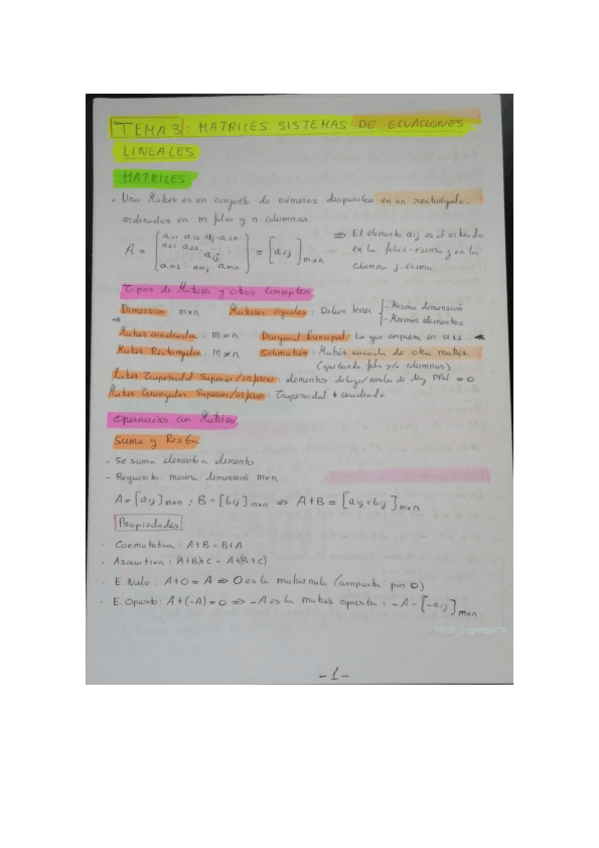 TEMA 3: MATRICES. SISTEMAS DE ECUACIONES
LINEALES
MATRICES
• Una Matriz es un conjunto de números dispuestos en un rectángulo,
ordenados en m filas y n columnas.
A = [a11 a12 aij a1n = [aij]mxn ⇒ El elemento aij es el situado
a21 a22 ... en la fila i-esima y en la
aij columna j-esima.
am1 .. amj .. amn]
Tipos de Matrices y otros Conceptos
Dimensión: mxn Matrices iguales: Deben tener { - Misma dimensión
- Mismos elementos
Matriz cuadrada: m=n Diagonal Principal: La que empieza en a11.
Matriz Rectangular: m≠n Submatriz: Matriz sacada de otra matriz
(quitando filas y/o columnas)
Matriz Trapezoidal Superior/inferior: elementos debajo/arriba de diag = 0
Matriz Triangular Superior/inferior: Trapezoidal + cuadrada
Operaciones con Matrices
Suma y Resta
- Se suma elemento a elemento
- Requisito: misma dimensión mxn
A = [aij]mxn ; B = [bij]mxn ⇒ A+B = [aij+bij]mxn
Propiedades
· Conmutativa: A+B = B+A
· Asociativa: (A+B)+C = A+(B+C)
· E. Nulo: A+0 = A ⇒ 0 es la matriz nula (compuesta por 0)
· E. Opuesto: A+(-A)=0 ⇒ -A es la matriz opuesta: -A = [-aij]mxn
-1-